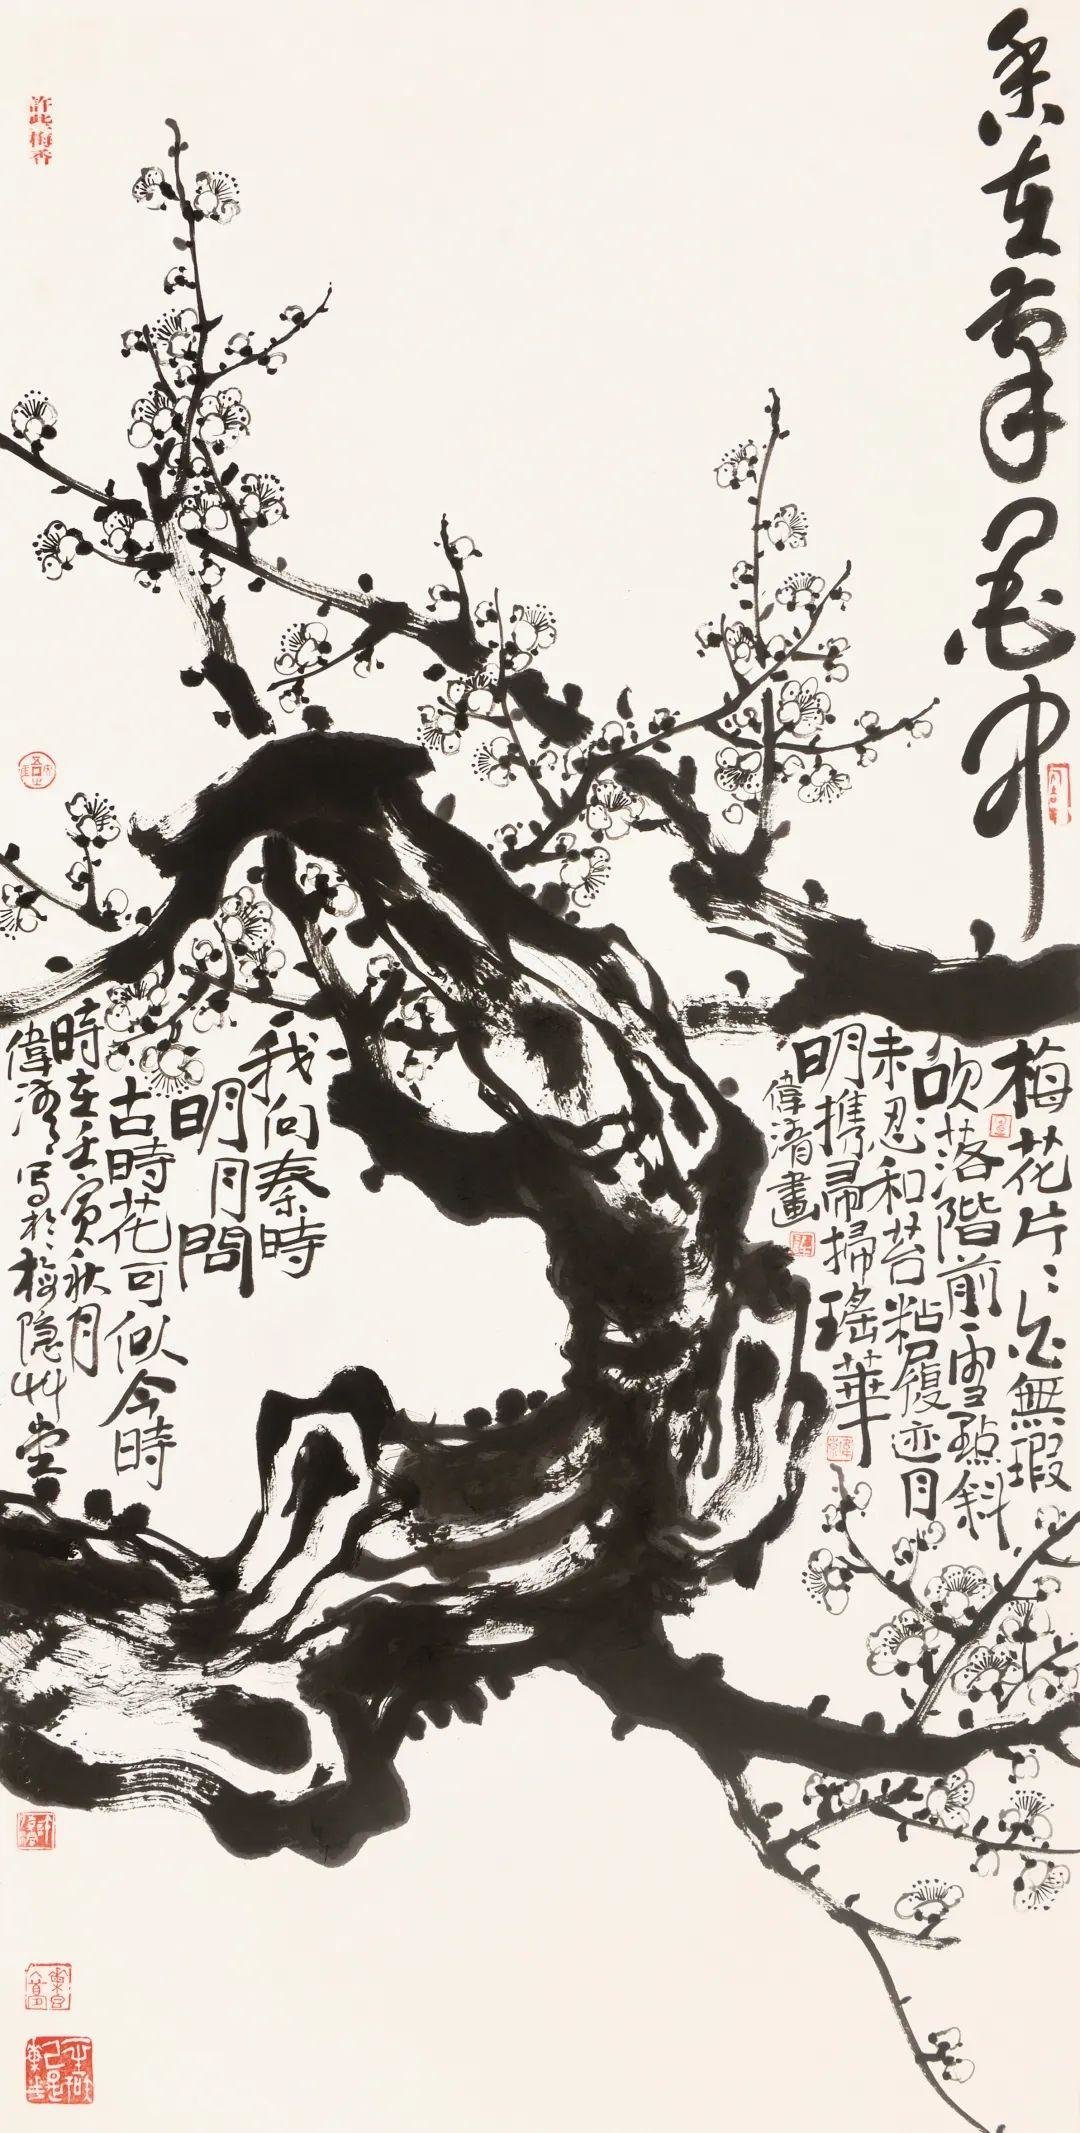 香在筆墨中
梅花片〻白無瑕
吹落階前雪點斜
未忍和苔粘履迹月
明携帚掃瑤華
偉清畫
我向秦時
明月問
古時花可似今時
時在壬寅秋月
偉清写於梅隐艸堂
許些梅香